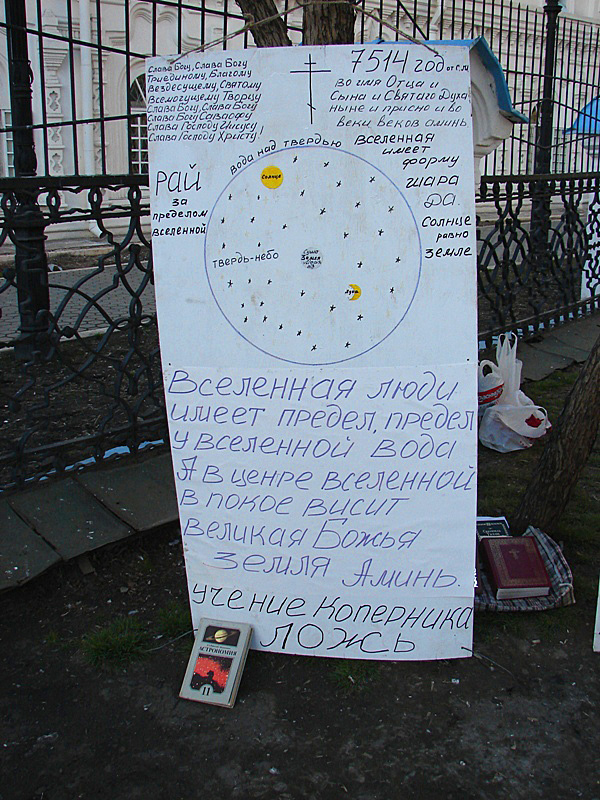 Слава Богу, Слава Богу
Триединому, Благому
Вездесущему, Святому
Всемогущему Творцу
Слава Богу, Слава Богу
Слава Богу Саваофу
Слава Господу Иисусу
Слава Господу Христу!
7514 год от С.М.
Во имя Отца и
Сына и Святаго Духа
ныне и присно и во
веки веков аминь
Вселенная
имеет
форму
шара
да.
Солнце
равно
Земле
РАЙ
за
пределом
вселенной
Вода над твердью
Солнце
твердь-небо
Земля
Луна
Вселенная люди
имеет предел, предел
у вселенной вода
А в ценре вселенной
в покое висит
великая Божья
Земля Аминь.
учение Коперника
ложь
АСТРОНОМИЯ
11